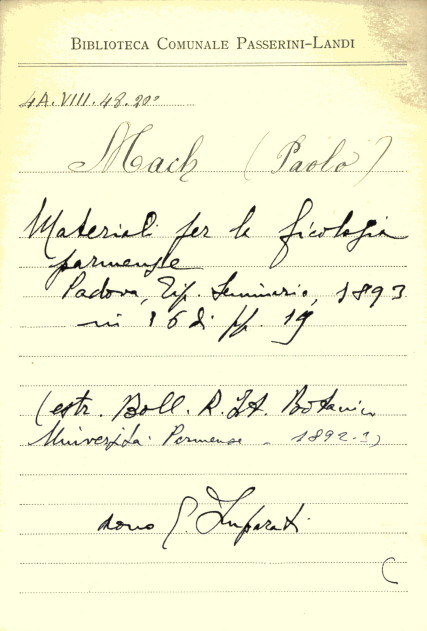 BIBLIOTECA COMUNALE PASSERINI-LANDI
4A.VIII.48.20°
Mach (Paolo)
Materiali per la ficologia
parmense
Padova, Tip. Seminario, 1893
in 16 di pp. 19
(estr. Boll. R. Ist. Botanico
Università Parmense - 1892-3)
dono E. Imparati
C